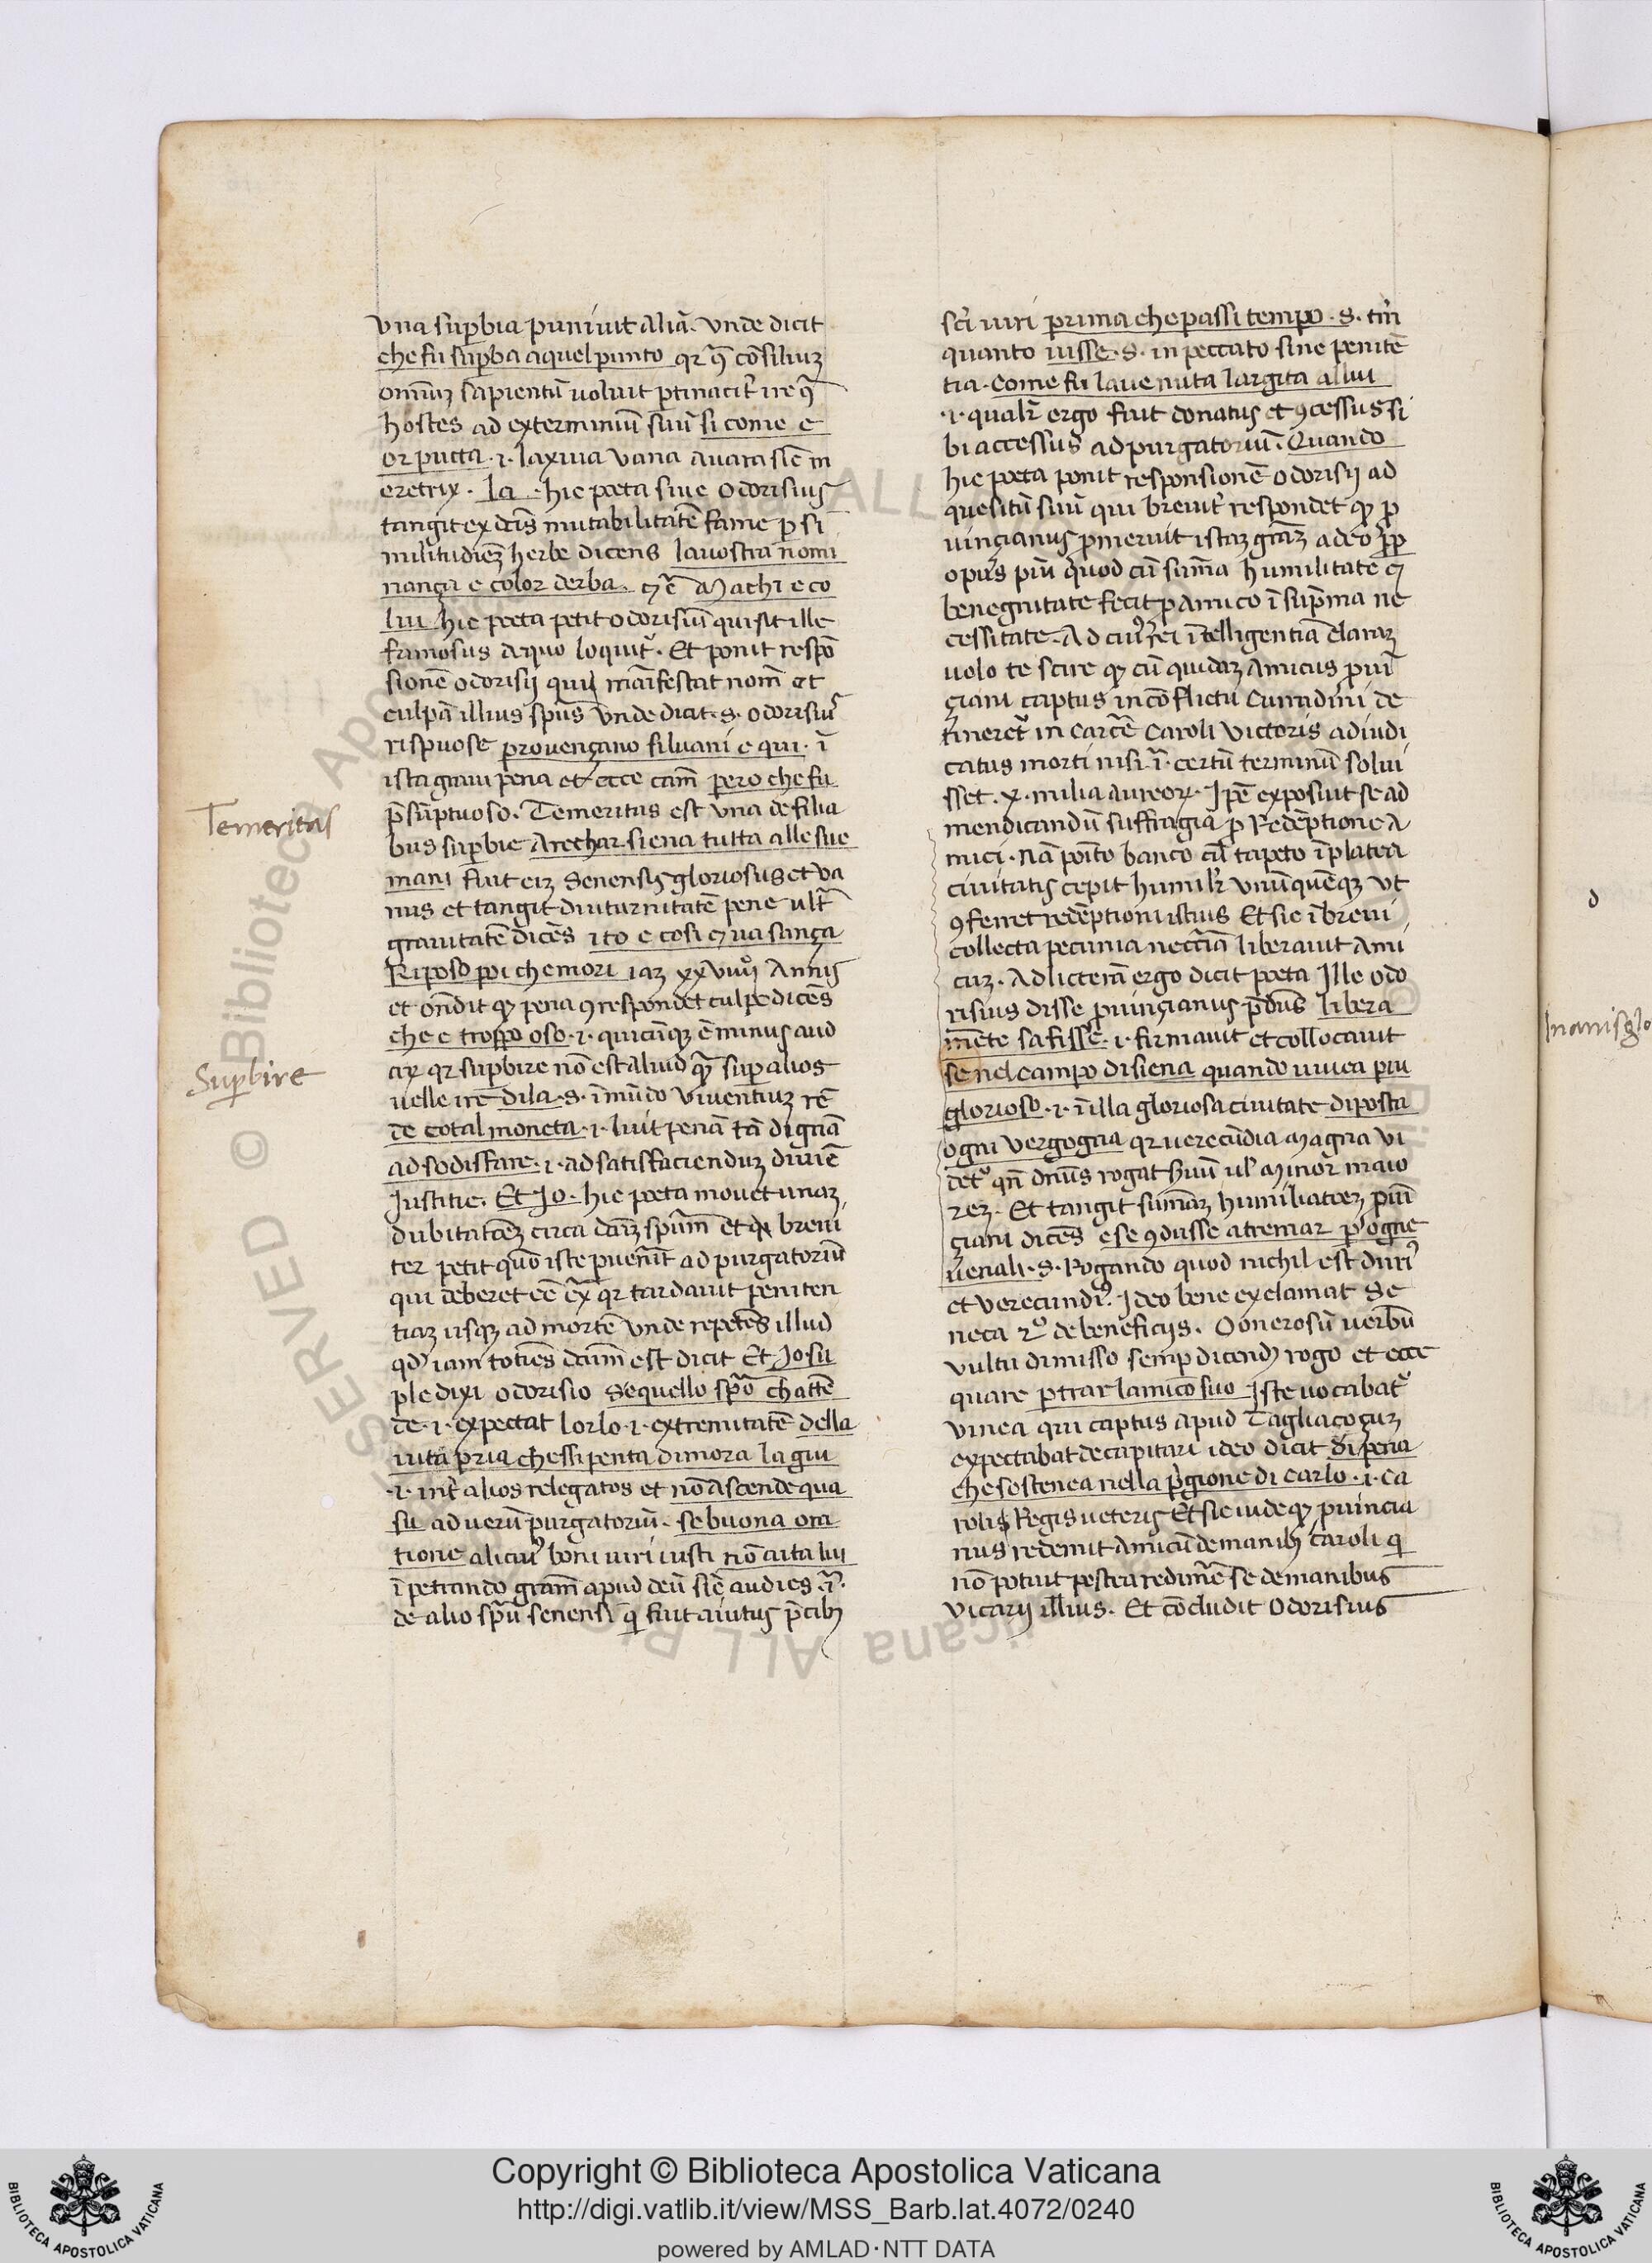 vna suꝑbia puniuit aliā. vnde dicit
che fu suꝑba a quel punto qꝛ ꝯ̄ cōsiliuꝫ
omniuꝫ sapientū uoluit ꝑtinacit̉ ire ꝯ̄
hostes ad exterminiū suū si come e
or putta .i. lasciua vana auara siē m
eretrix . La . hic poeta siue odorisius
tangit ex dc̄is mutabilitatē fame ꝑ si
militudieꝫ herbe dicens la uostra nomi
nança e color derba . ⁊ c̄ Machi e co
lui hic poeta petit odorisiū qui sit ille
famosus de quo loquit̉ . Et ponit respō
sionē odorisij qui maīfestat nom̄ et
culpā illius spūs vnde dicit . s . odorisiu᷒
rispuose prouençano siluani e qui . ī
ista graui pena et ecce cam̄ pero che fu
p̄sūptuoso . Temeritas est vna de filia
bus suꝑbie A rechar siena tutta alle sue
mani fuit eīꝫ senensis gloriosus et va
nus et tangit diuturnitatē pene ult̄
grauitatē dicēs ito e cosi ⁊ ua sança
Riposo poi che mori iaꝫ xxviiij Annis
et ōndit ꝙ pena ꝯrespondet culpe dicēs
che e troppo oso .i. quicūqꝫ ē minus aud
ax qꝛ suꝑbire nō est aliud ꝙ̄ super alios
uelle ire di la . s . ī mūdo viuentiuꝫ rē
de cotal moneta .i. luit penā tā dignā
ad sodisfare .i. ad satisfaciendūꝫ diuiē
Justitie . Et Jo . hic poeta mouet unaꝫ
dubitatōeꝫ circa dc̄aꝫ spūm et breui
ter petit quō iste puenīt ad purgatoriū
qui deberet eē ex̄ qꝛ tardauit peniten
tiaꝫ usqꝫ ad mortē vnde repetēs illud
qd̄ iam totiēs dcūm est dicit Et Jo su
ple dixi odorisio Se quello spr̄o chattē
de .i. expectat lorlo .i. extremitatē della
uita pria che ssi penta dimora la giu
.i. int̉ alios relegatos et nō ascende qua
su ad uerū purgatoriū . se buona ora
tione alicui᷒ boni uiri iusti nō aita lui
ī petrando grām apud deū sic̄ audies ī.
de alio spū senensi q̄ fuit aiutus p̄cibꝫ
Temeritas
Suꝑbire
sc̄i uiri prima che passi tempo . s . tm̄
quanto uisse . s . in peccato sine penitē
tia . Come fu la uenuta largita a lui
.i. qualr̄ ergo fuit donatus et ꝯcessus si
bi accessus ad purgatoriū . Quando
hic poeta ponit responsionē odorisij ad
quesitū suū qui breuit̉ respondet ꝙ pr
uinçianus ꝓmeruit istaꝫ grāꝫ a deo ꝓp̄
opus piū quod cū sum̄a humilitate ⁊
benegnitate fecit ꝑ amico ī sup̄ma ne
cessitate . Ad cui᷒ rei ītelligentiā claraꝫ
uolo te scire ꝙ cū quidaꝫ amicus pruī
çiani captus in cōflictu Curradini de
tineret̉ in carcē Caroli victoris adiudi
catus morti nisi ī . certū terminū solui
sset . x . milia aureoꝝ . Ipē exposuit se ad
mendicandū suffragia ꝑ Redēptione a
mici . nā poīto banco cū tapeto ī platea
ciuitatis cepit humilr̄ vnūquēqꝫ vt
ꝯferret redēptioni istius Et sic ī breui
collecta pecunia nec̄ciā liberauit ami
cuꝫ . Ad licterā ergo dicit poeta Ille odo
risius disse pruinçianus p̄dc̄us libera
mēte safisse .i. firmauit et collocauit
se nel campo di siena quando uiuea piu
glorioso .i. ī illa gloriosa ciuitate diposta
ogni vergogna qꝛ uerecūdia magna vi
det̉ qn̄ dn̄us rogat seruū ul̄ minor maio
reꝫ . Et tangit sum̄aꝫ humiliatōeꝫ pruī
çiani dicēs e se ꝯdusse a tremar ꝑ ogne
uenali . s . Rogando quod nichil est duri᷒
et verecundi᷒ . Ideo bene exclamat Se
neca 2º de beneficijs . O onerosū uerbū
vultu dimisso semꝑ dicendꝫ rogo et ecce
quare ꝑ trar lamico suo Iste uocabat̉
vinea qui captus apud Tagliacoçuꝫ
expectabat decapitari ideo dicit di pena
che sostenea nella p̄gione di Carlo .i. Ca
rolis Regis ueteris Et sic uide ꝙ pruincia
nus redemit amicū de manibꝫ caroli q̄
nō potuit postea redimē se de manibus
vicarij illius . Et cōcludit odorisius
Inanis glo
Copyright © Biblioteca Apostolica Vaticana
http://digi.vatlib.it/view/MSS_Barb.lat.4072/0240
powered by AMLAD·NTT DATA
BIBLIOTECA APOSTOLICA VATICANA
BIBLIOTECA APOSTOLICA VATICANA